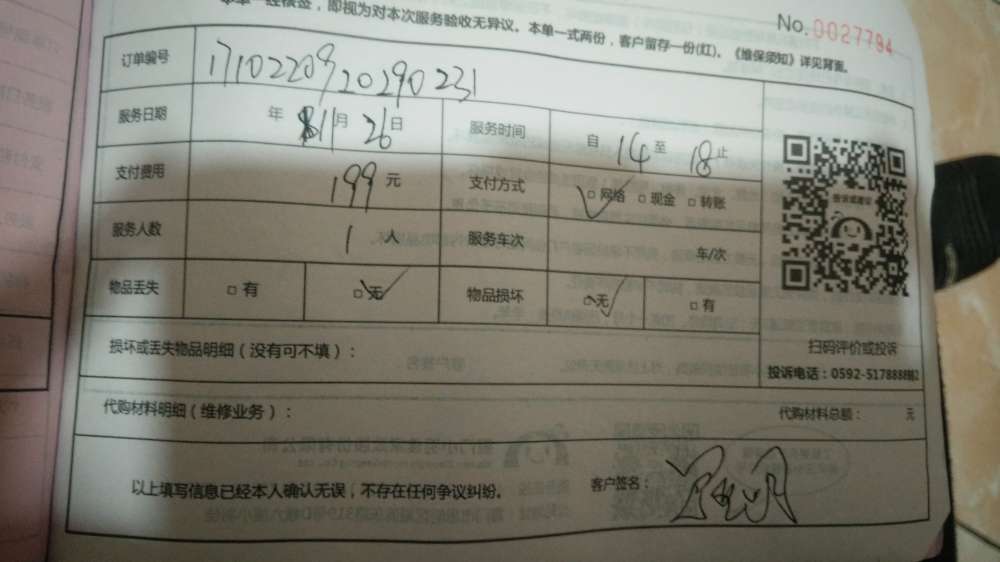 即视为对本次服务验收无异议。本单一式两份，客户留存一份(红)。《维保须知》详见背面。
No.0027794
订单编号 1710220920290231
服务日期 年 11月 26日 服务时间 自 14 至 18 止
支付费用 199 元 支付方式 □网络 □现金 □转账
服务人数 1 人 服务车次 车/次
物品丢失 □有 □无 物品损坏 □无 □有
损坏或丢失物品明细（没有可不填）：
扫码评价或投诉
投诉电话：0592-5178888
代购材料明细（维修业务）： 代购材料总额： 元
以上填写信息已经本人确认无误，不存在任何争议纠纷。 客户签名：